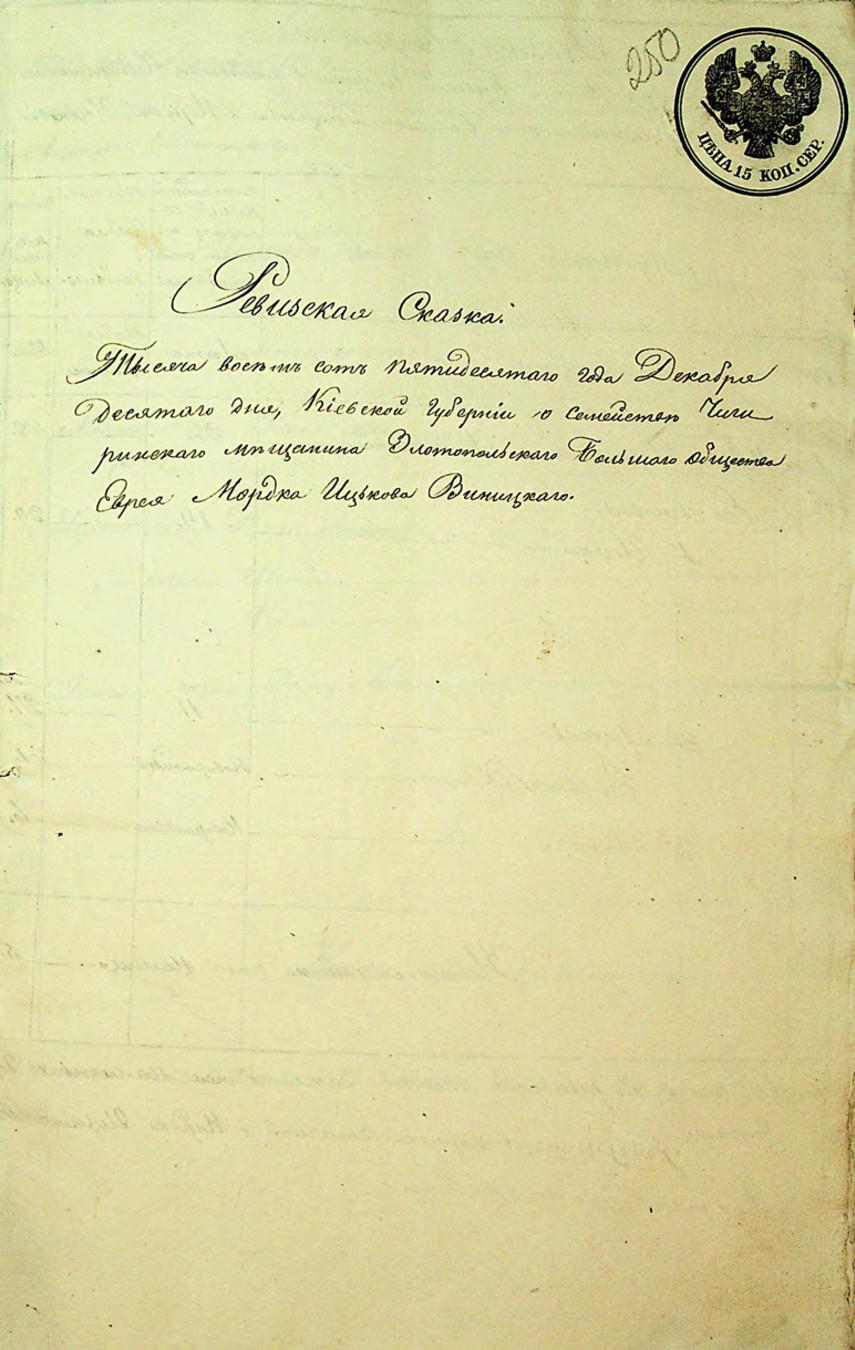 250
ЦѢНА 15 КОП. СЕР.
Ревизская Сказка.
Тысяча восемь сотъ пятидесятаго года Декабря
десятаго дня, Кіевской Губерніи о семействѣ Чиги
ринскаго мѣщанина Златопольскаго Большаго общества
Еврея Мордка Ицькова Виницкаго.